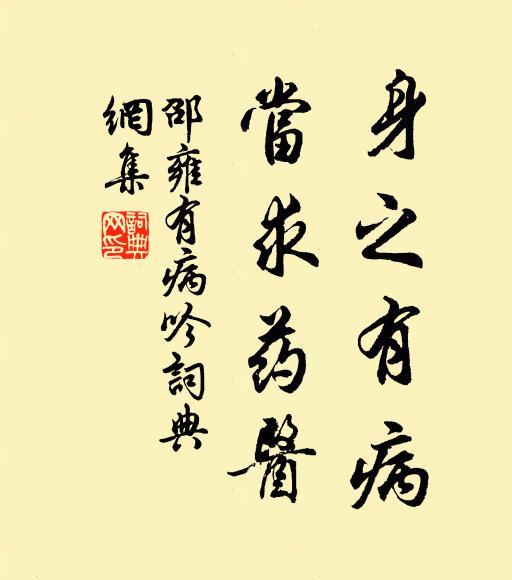 身之有病
當求药醫
邵雍有病吟詞典
網集
詞典網印